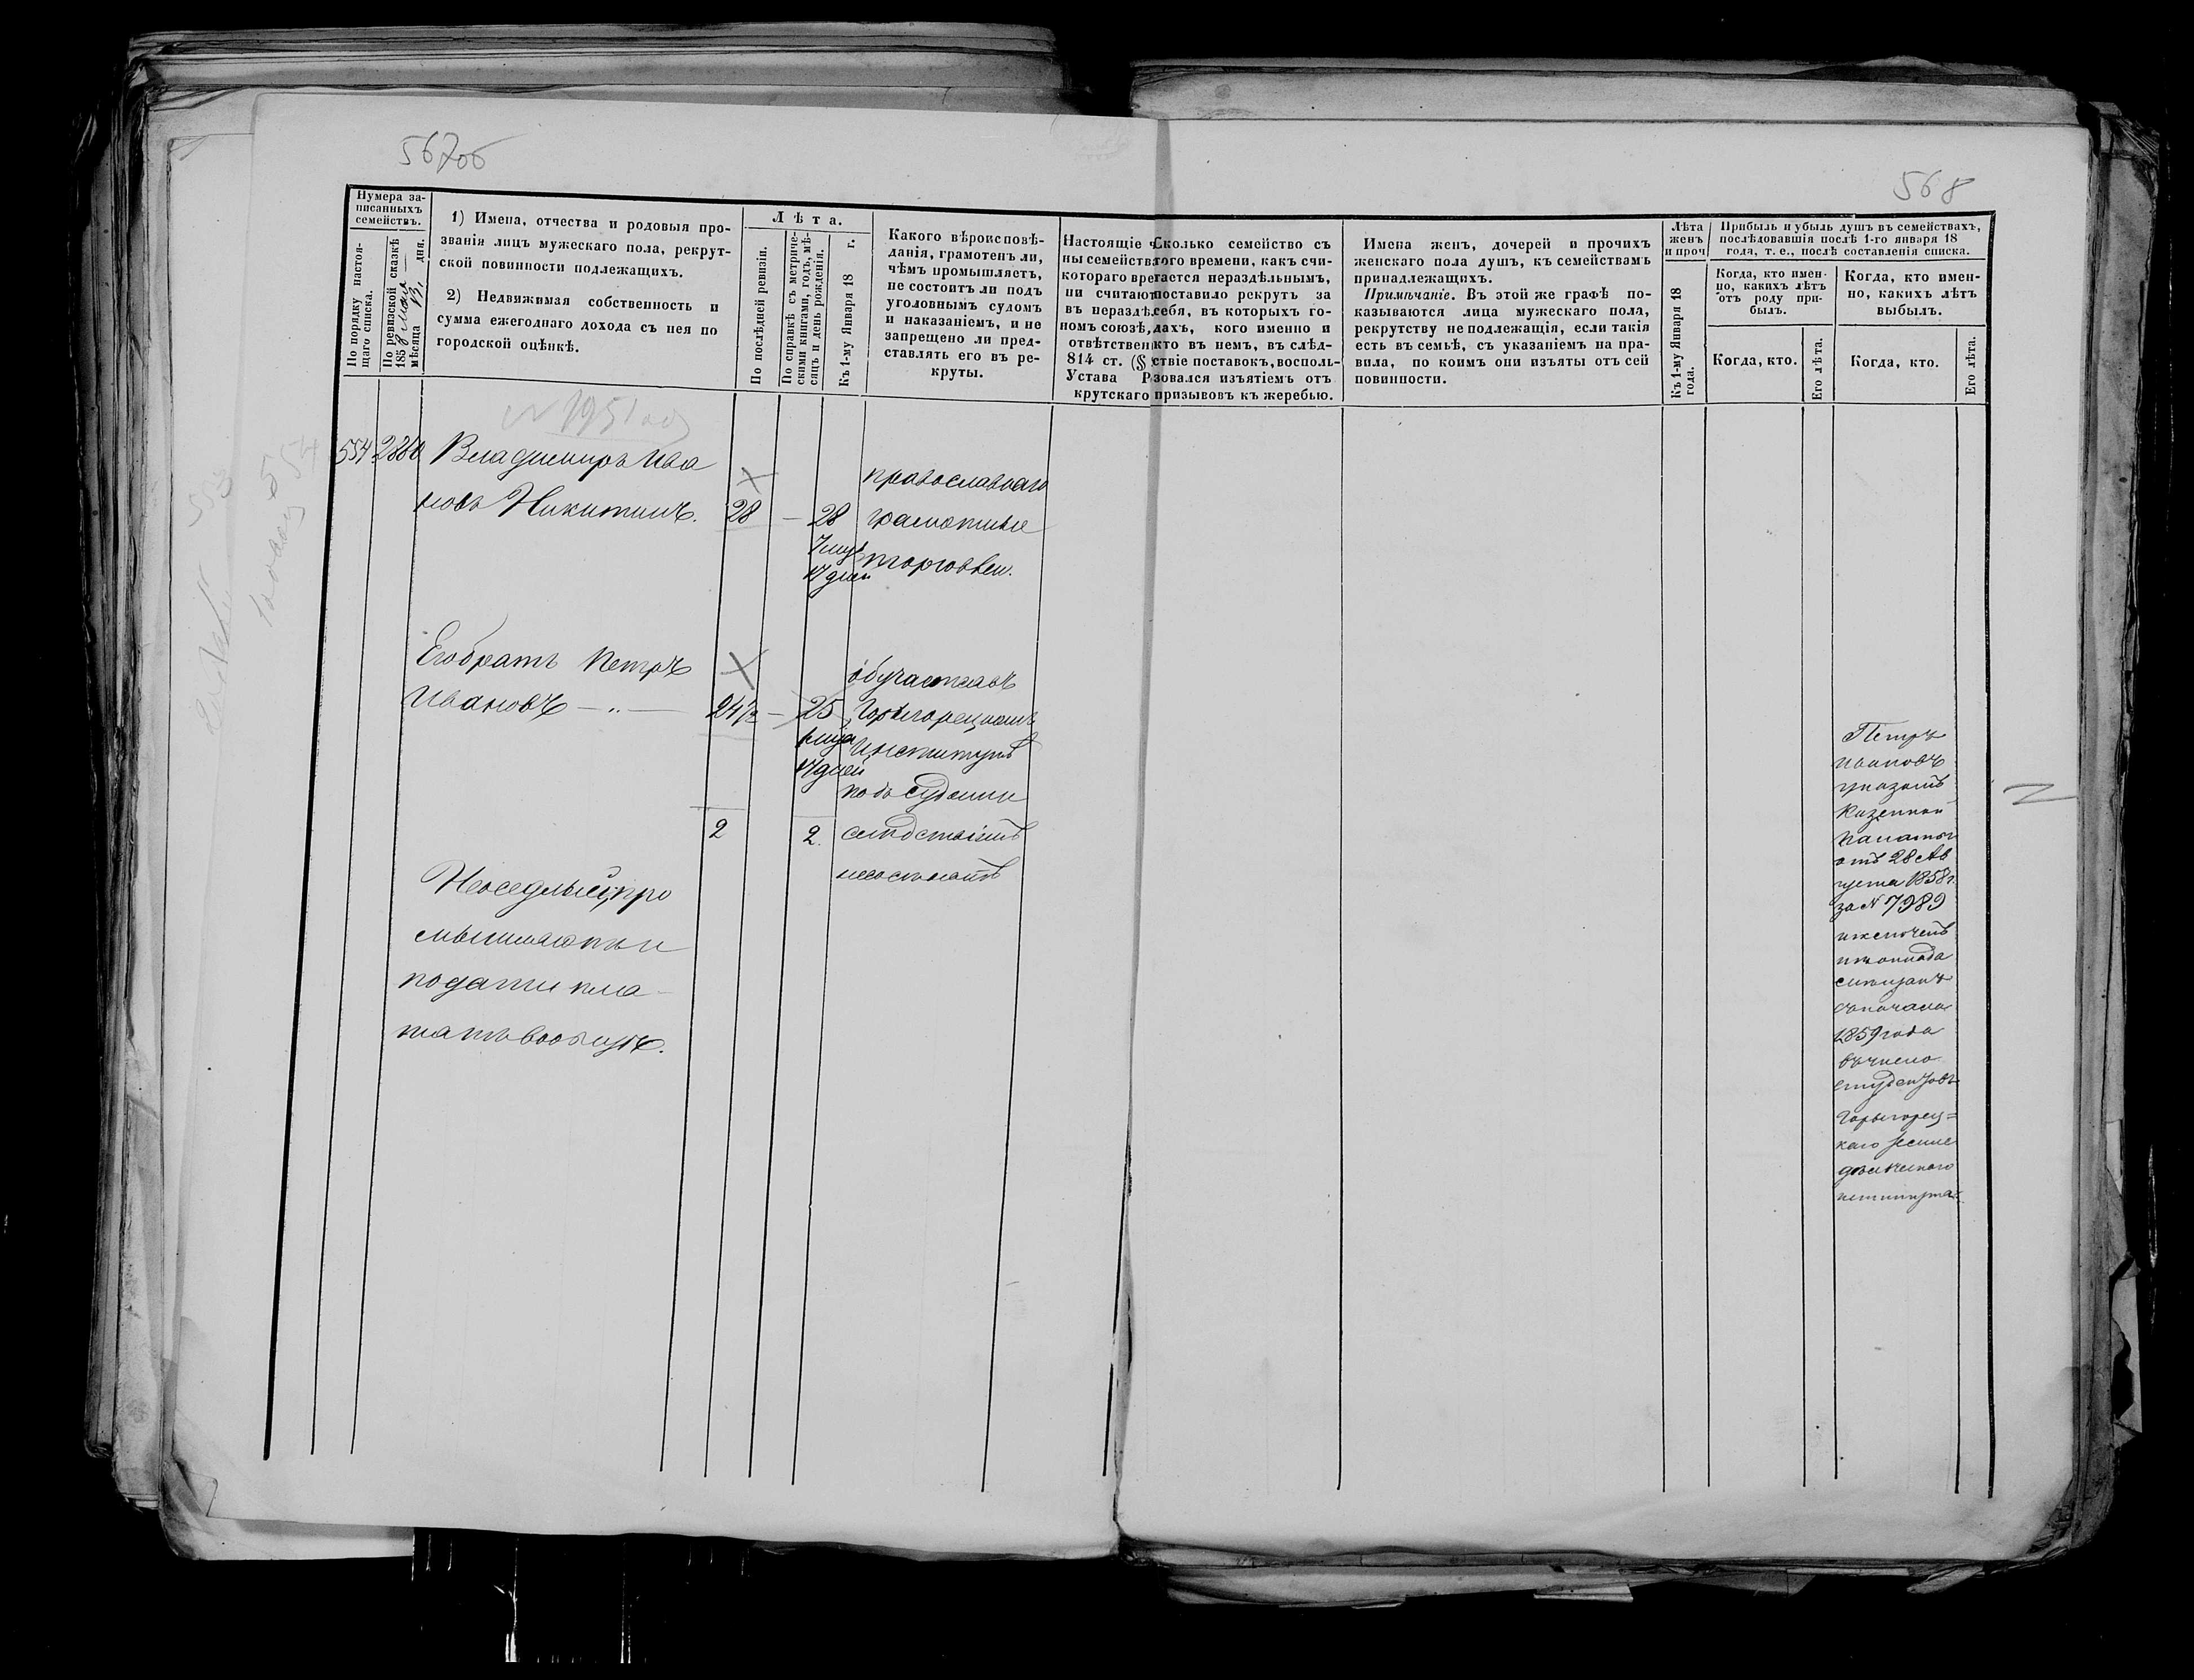 567об
568
Нумера за-
писанныхъ
семействъ.
По порядку настоя-
щаго списка.
По ревизской сказкѣ
1857 мая
мѣсяца дня.
1) Имена, отчества и родовыя про-
званія лицъ мужескаго пола, рекрут-
ской повинности подлежащихъ.
2) Недвижимая собственность и
сумма ежегоднаго дохода съ нея по
городской оцѣнкѣ.
Лѣта.
По послѣдней ревизіи.
По справкѣ съ метриче-
скими книгами, годъ, мѣ-
сяцъ и день рожденія.
Къ 1-му Января 18 г.
Какого вѣроисповѣ-
данія, грамотенъ ли,
чѣмъ промышляетъ,
не состоитъ ли подъ
уголовнымъ судомъ
и наказаніемъ, и не
запрещено ли пред-
ставлять его въ ре-
круты.
Настоящіе ч
ны семейств
котораго вре
ни считают
въ нераздѣл
номъ союзѣ,
отвѣтствен
814 ст. (§
Устава Р
крутскаго
Сколько семейство съ
того времени, какъ счи-
тается нераздѣльнымъ,
поставило рекрутъ за
себя, въ которыхъ го-
дахъ, кого именно и
кто въ немъ, въ слѣд-
ствіе поставокъ, восполь-
зовался изъятіемъ отъ
призывовъ къ жеребью.
Имена женъ, дочерей и прочихъ
женскаго пола душъ, къ семействамъ
принадлежащихъ.
Примѣчаніе. Въ этой же графѣ по-
казываются лица мужескаго пола,
рекрутству не подлежащія, если такія
есть въ семьѣ, съ указаніемъ на пра-
вила, по коимъ они изъяты отъ сей
повинности.
Лѣта
женъ
и проч
Къ 1-му Января 18
года.
Прибыль и убыль душъ въ семействахъ,
послѣдовавшія послѣ 1-го января 18
года, т. е., послѣ составленія списка.
Когда, кто имен-
но, какихъ лѣтъ
отъ роду при-
былъ.
Когда, кто имен-
но, какихъ лѣтъ
выбылъ.
Когда, кто.
Его лѣта.
Когда, кто.
Его лѣта.
554 2880 Владимиръ Ива
новъ Никитинъ. 28 — 28
7 мѣс
17 дней
православнаго
грамотные
торговлею.
Его братъ Петръ
Ивановъ — „ — 24½ — 25
17 дней
обучается въ
Горыгорецкомъ
Институтѣ
подъ судомъ и
слѣдствіемъ
несостоятъ
2 2.
Неоседлые, про
мышляютъ и
подати пла-
тятъ вообще.
Петръ
Ивановъ
указомъ
Казенной
Палаты
отъ 28 Ав
густа 1858 г.
за N 7989
исключенъ
изъ оклада
съ начала
1859 года
въ число
студентовъ
Горыгорец=
каго земле
дѣльческаго
института